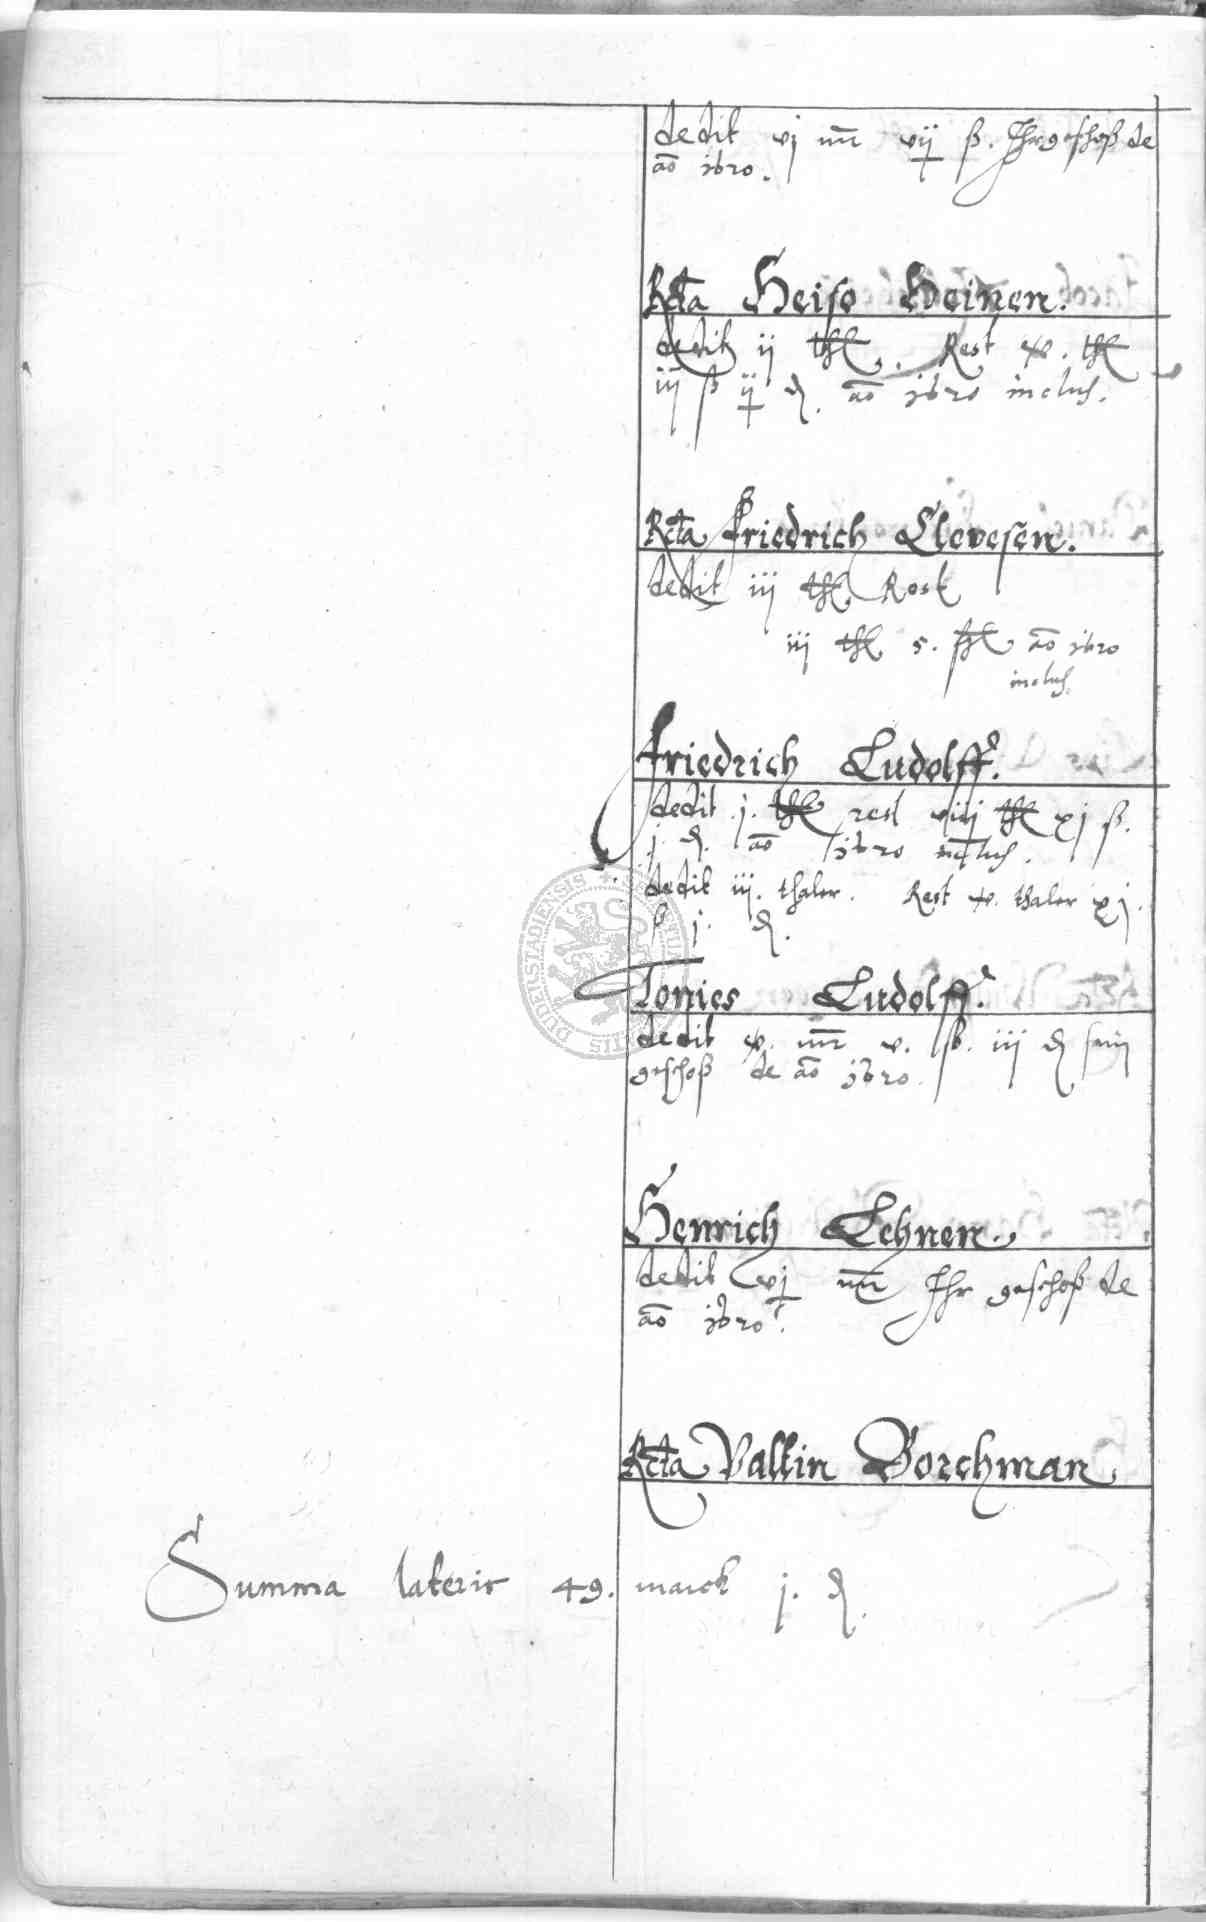 dedit vj mr vij ß. Ihr geschoß de
ao 1620.
Rcta Heiso Heinen.
dedit ij thl. Rest v. thl
iij ß ij d. ao 1620 inclus.
Rcta Friedrich Clevesen.
dedit iij thl. Rest
iij thl 5. ßl ao 1620
inclus.
Friedrich Ludolff.
dedit j. thl rest viij thl xj ß.
j d. ao 1620 inclus.
dedit iij. thaler. Rest v. thaler xj.
ß j. d.
Tonies Ludolff.
dedit v. mr v. ß. iij d sein
geschoß de ao 1620.
Henrich Lehnen.
dedit vj mr Ihr geschoß de
ao 1620.
Rcta Valtin Borchman
Summa lateris 49. marck j. d.
DUDERSTADIENSIS